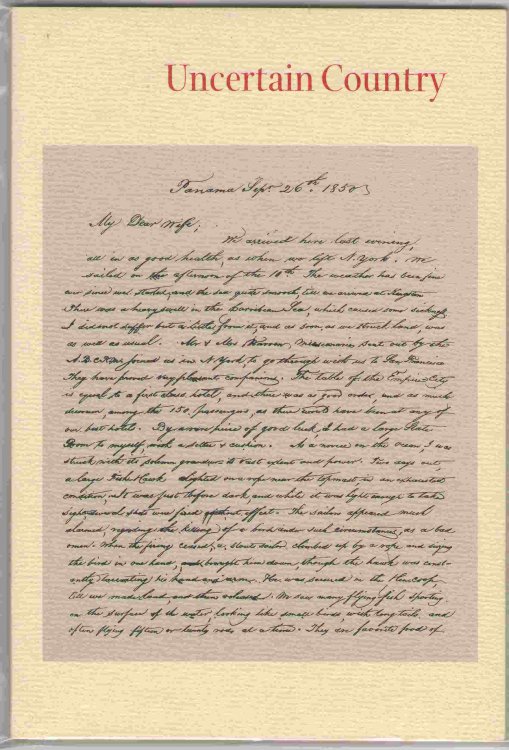 Uncertain Country
Panama Sept. 26th. 1850
My Dear Wife,
We arrived here last evening,
all in as good health, as when we left N. York. We
sailed on the afternoon of the 10th. The weather has been fine
ever since we started, and the sea quite smooth, till we arrived at Kingston
There was a heavy swell in the Carribean Sea, which caused some sickness,
I did not suffer but a little from it, and as soon as we struck land, was
as well as usual. Mr & Mrs Warren, Missionaries sent out by the
joined us in N. York, to go through with us to San Francisco
They have proved very pleasant companions. The table of the Empire City
is equal to a first class hotel, and there was as good order, and as much
decorum among the 150 passengers, as there could have been at any of
our best hotels. By a piece of good luck, I had a large State
Room to myself, with a settee & cushion. As a novice on the ocean, I was
struck with its solemn grandeur its vast extent and power. Two days out,
a large Fish Hawk alighted on a rope near the topmast, in an exhausted
condition, It was just before dark, and while it was light enough to take
sight, several shots was fired without effect. The sailors appeared much
alarmed, regarding the killing of a bird under such circumstances, as a bad
omen. When the firing ceased, a stout sailor climbed up by a rope and seizing
the bird in one hand, brought him down, though the hawk was const-
antly lacerating his hand and arm. He was secured in the Hencoop,
till we made land and then released. We saw many flying fish sporting
on the surface of the water, looking like small birds, with long tails, and
often flying fifteen or twenty rods at a time. They are favorite food of